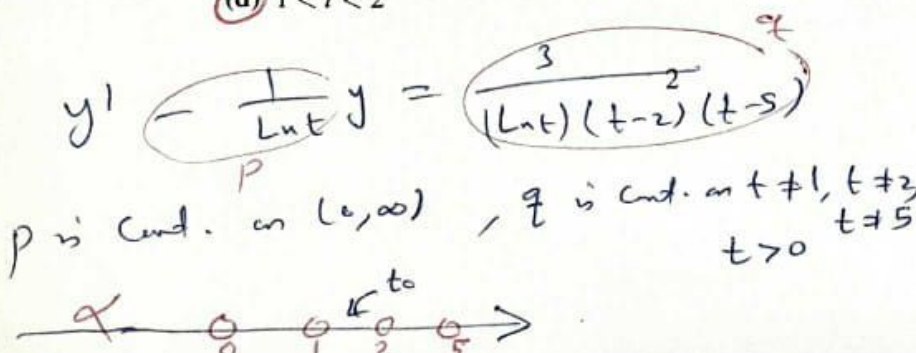 (d) 1 < t < 2
q
y' - 1/(Ln t) y = 3/((Ln t) (t-2)² (t-5))
p
p is Cont. on (0,∞) , q is Cont. on t ≠ 1, t ≠ 2,
t ≠ 5
t > 0
t₀
0 1 2 5